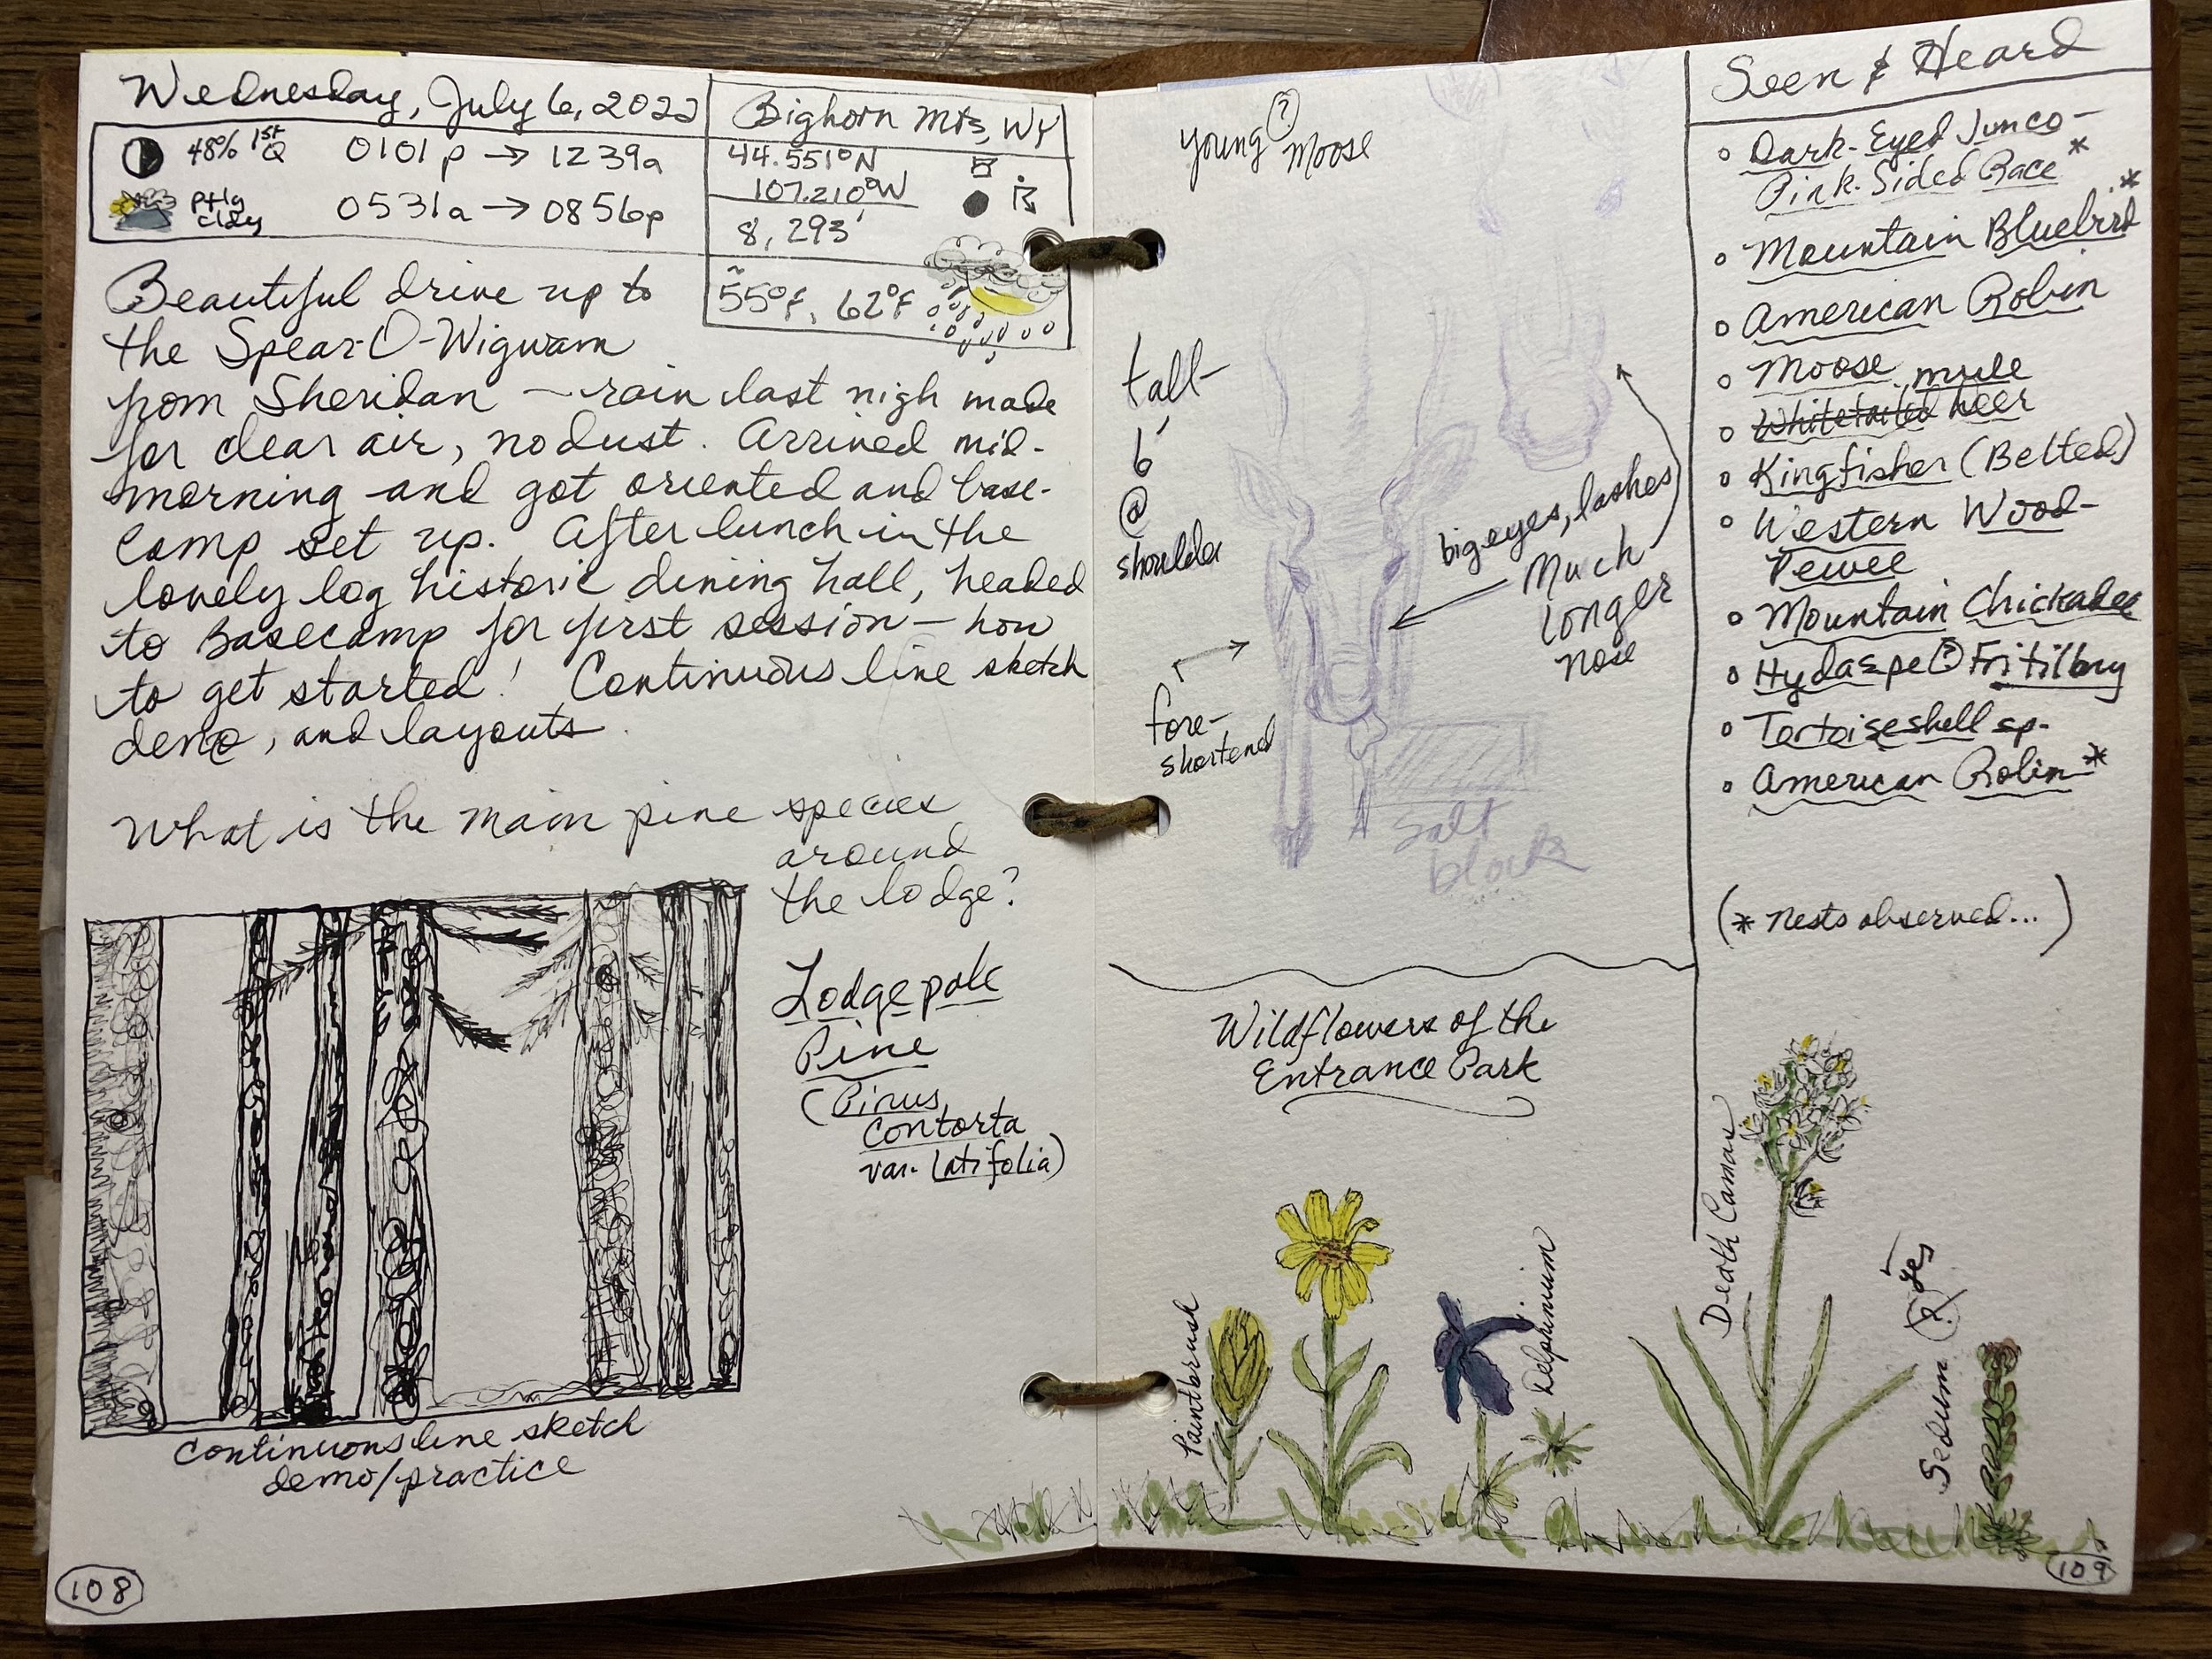 Wednesday, July 6, 2022
48% 1st Q 0101p → 1239a
ptly cldy 0531a → 0856p
Bighorn Mts, WY
44.551°N
107.210°W
8,293'
~55°F, 62°F
Beautiful drive up to
the Spear-O-Wigwam
from Sheridan — rain last nigh made
for clear air, no dust. Arrived mid-
morning and got oriented and base-
camp set up. After lunch in the
lovely log historic dining hall, headed
to Basecamp for first session — how
to get started! Continuous line sketch
demo, and layouts.
What is the main pine species
around
the lodge?
Lodgepole
Pine
(Pinus
contorta
var. latifolia)
Continuous line sketch
demo/practice
108
young (?) Moose
tall -
6'
@
shoulder
big eyes, lashes
Much
longer
nose
fore-
shortened
Salt
block
Wildflowers of the
Entrance Park
Paintbrush
Delphinium
Death Camas
Sedum (?) yes
Seen & Heard
Dark-Eyed Junco -
Pink-Sided Race *
Mountain Bluebird *
American Robin
Moose
Whitetailed mule Deer
Kingfisher (Belted)
Western Wood-
Pewee
Mountain Chickadee
Hydaspe (?) Fritilbry
Tortoiseshell sp.
American Robin *
(* Nests observed...)
109